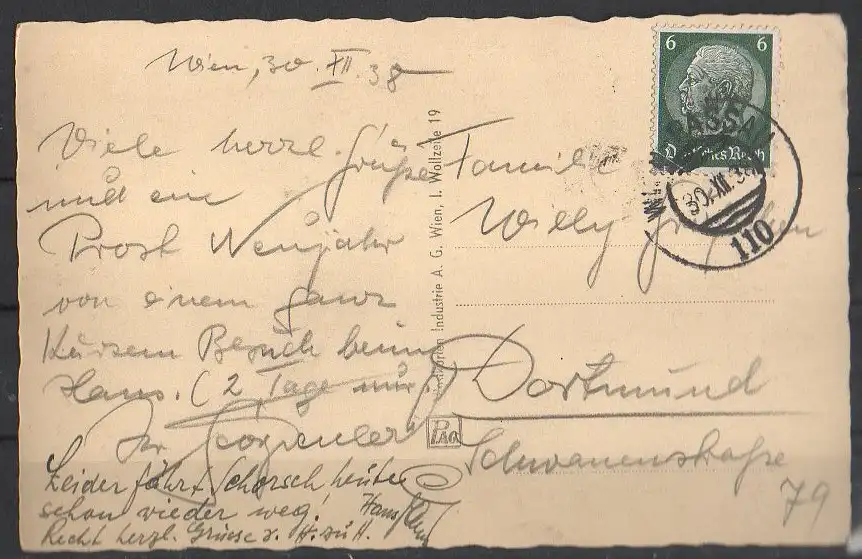 Wien, 30. XII. 38
Viele herzl. Grüße
und ein
Prosit Neujahr
von einem ganz
kurzen Besuch beim
Hans. (2 Tage nur)
Ihr
Leider fährt Schorsch heute
schon wieder weg! Hans
Recht herzl. Grüsse v. H. zu H.
Industrie A. G. Wien, I. Wollzeile 19
PAG
6 6
Deutsches Reich
PASSAU
30.XII.38
110
Familie
Willy
Dortmund
Schwanenstraße
79